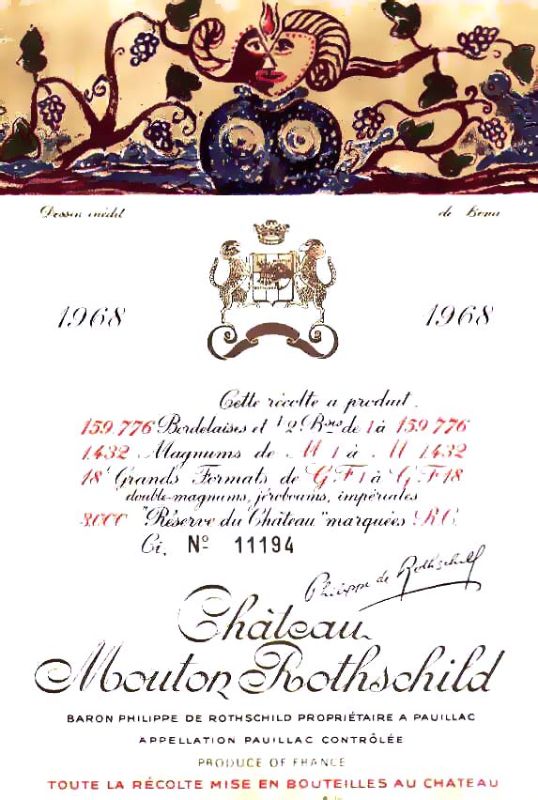 Dessin inédit de Bona
1968 1968
Cette récolte a produit.
159.776 Bordelaises et 1/2 Bses de 1 à 159.776
1.432 Magnums de M 1 à M 1.432
18 Grands Formats de G F 1 à G F 18
double-magnums, jéroboams, impériales
3.000 "Réserve du Château" marquées R.C.
Ci, Nº 11194
Philippe de Rothschild
Château
Mouton Rothschild
BARON PHILIPPE DE ROTHSCHILD PROPRIÉTAIRE A PAUILLAC
APPELLATION PAUILLAC CONTRÔLÉE
PRODUCE OF FRANCE
TOUTE LA RÉCOLTE MISE EN BOUTEILLES AU CHATEAU